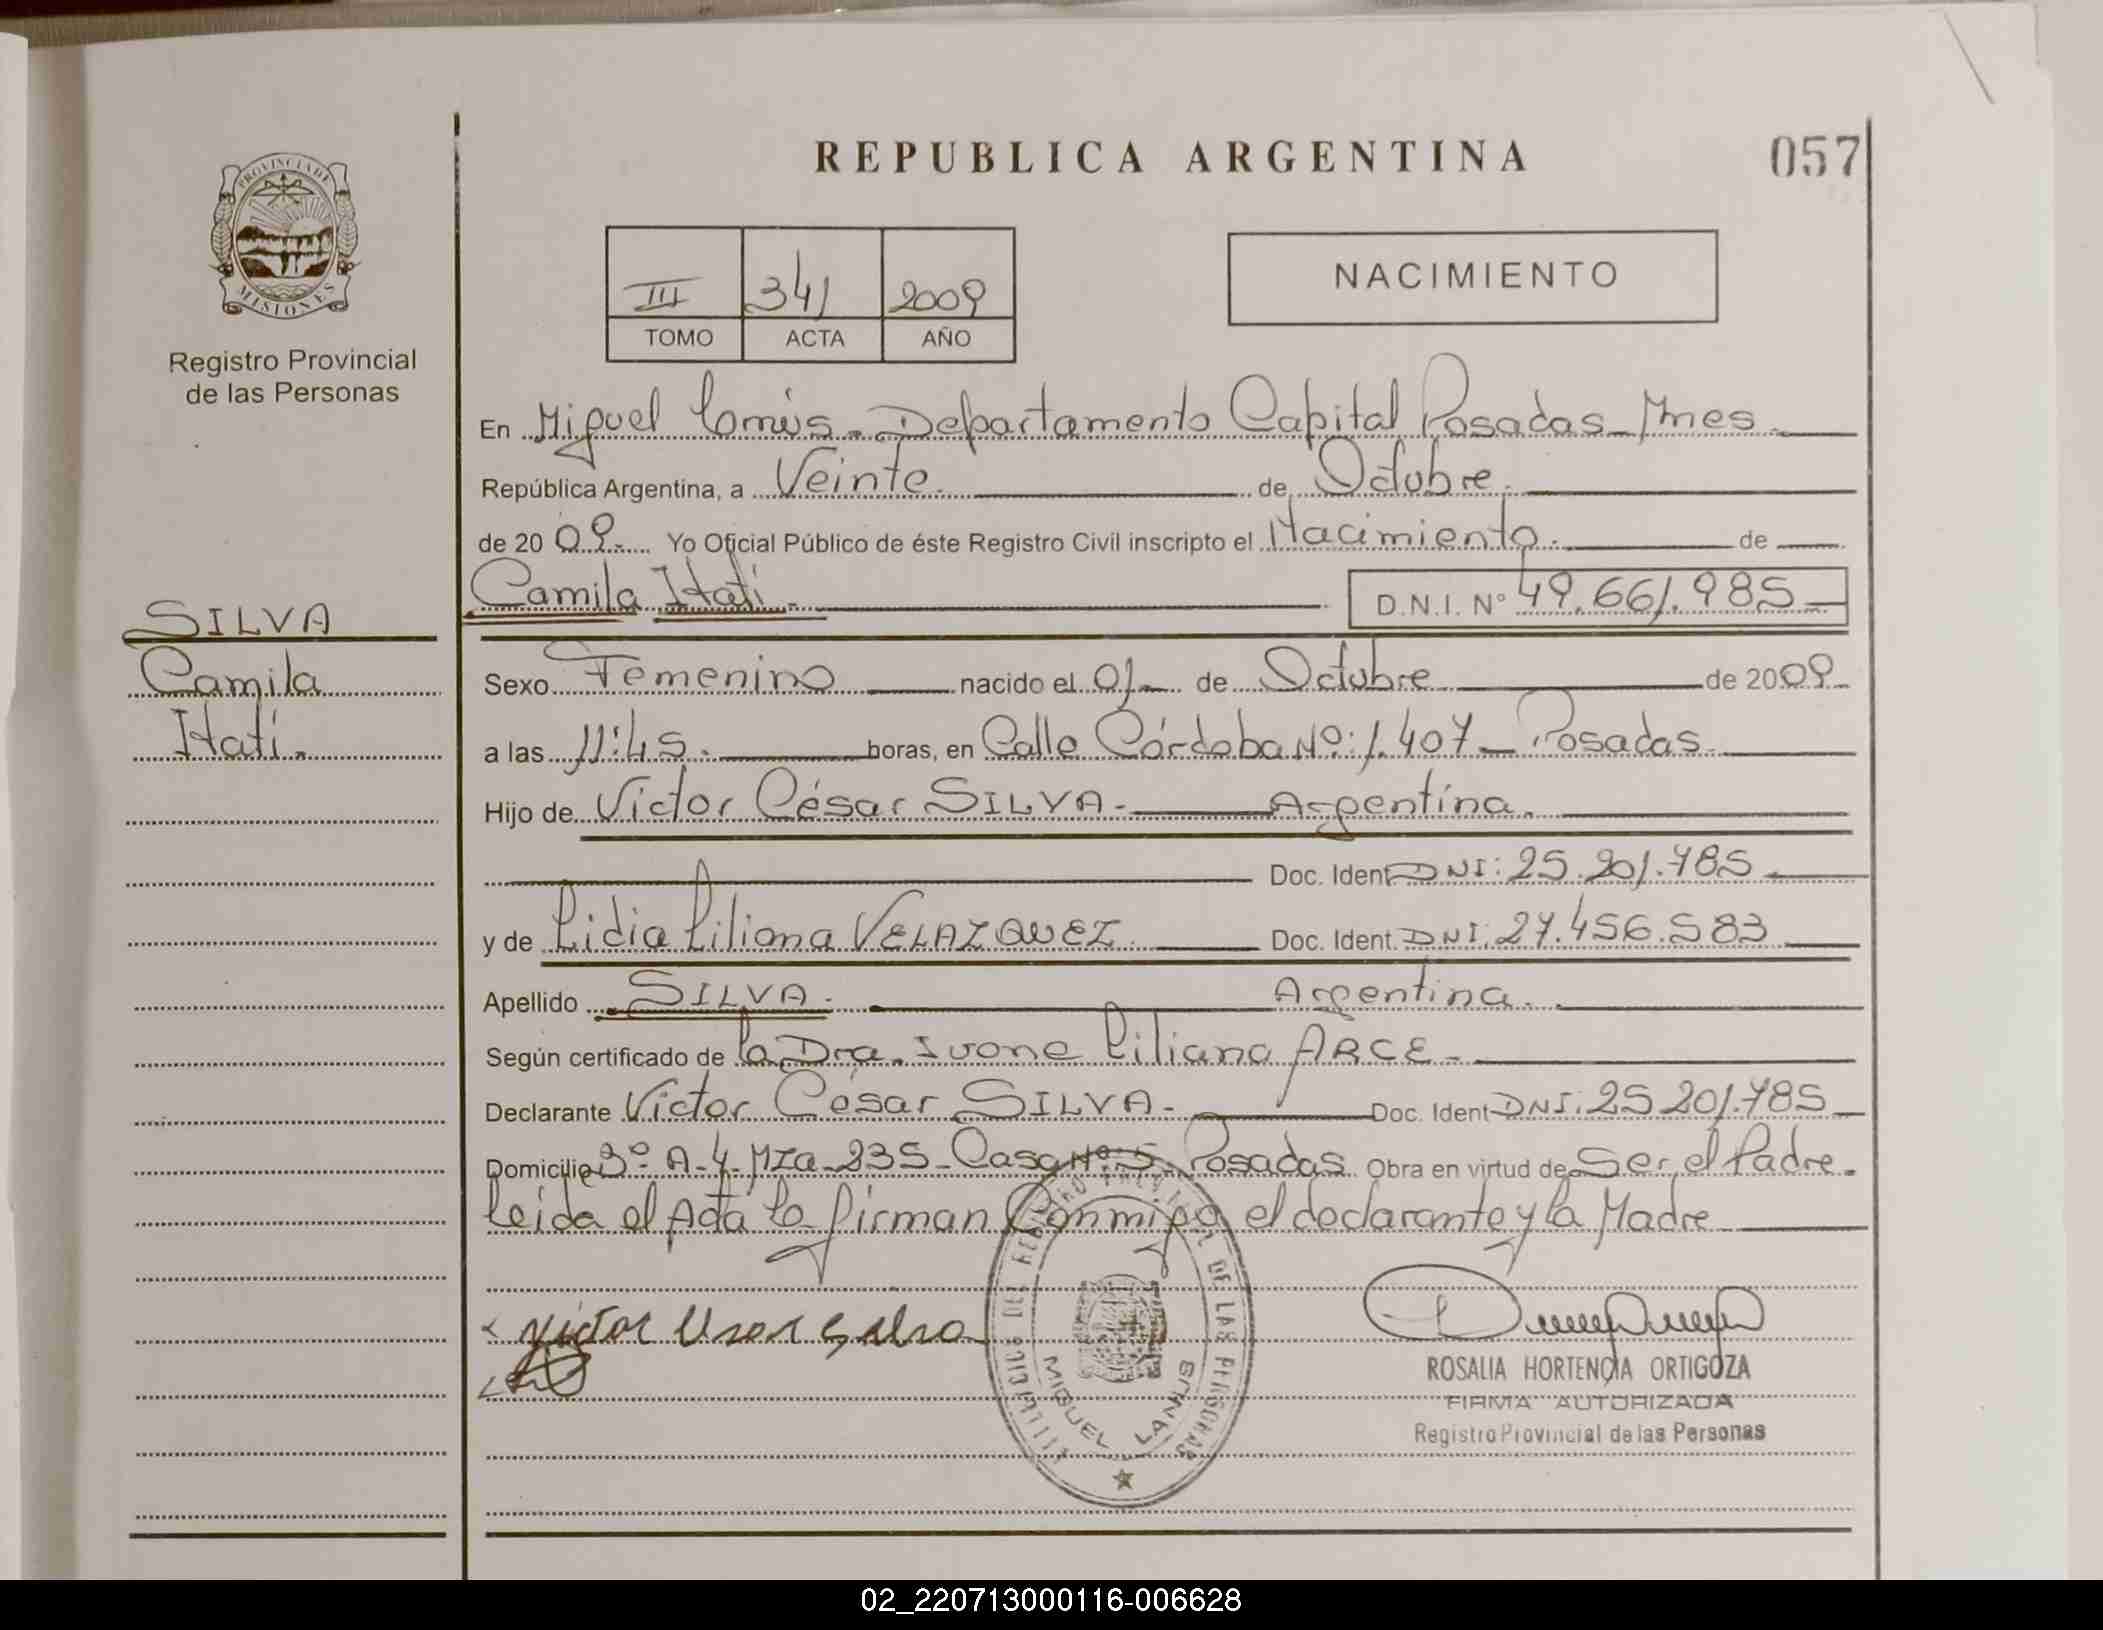 REPUBLICA ARGENTINA
057
PROVINCIA DE
MISIONES
Registro Provincial
de las Personas
III 341 2009
TOMO ACTA AÑO
NACIMIENTO
En Miguel Lanús - Departamento Capital Posadas - Mnes.
República Argentina, a Veinte. de Octubre.
de 20 09. Yo Oficial Público de éste Registro Civil inscripto el Nacimiento. de
Camila Itatí. D.N.I. N° 49.661.985
SILVA
Camila
Itatí.
Sexo Femenino nacido el 01 de Octubre de 2009
a las 11:45. horas, en Calle Córdoba Nº: 1.407 - Posadas
Hijo de Victor César SILVA - Argentina.
Doc. Ident DNI: 25.201.785
y de Lidia Liliana VELAZQUEZ Doc. Ident. DNI. 27.456.583
Apellido SILVA. Argentina.
Según certificado de la Dra. Ivone Liliana ARCE -
Declarante Victor César SILVA - Doc. Ident DNI: 25 201.785
Domicilio 3º A-4 Mza 235 - Casa Nº: 5 - Posadas Obra en virtud de Ser el Padre.
leida el Acta la firman Conmigo el declarante y la Madre
Victor Cesar Silva
DEL REGISTRO PROVINCIAL DE LAS PERSONAS
MIGUEL LANUS
ROSALIA HORTENCIA ORTIGOZA
FIRMA AUTORIZADA
Registro Provincial de las Personas
02_220713000116-006628